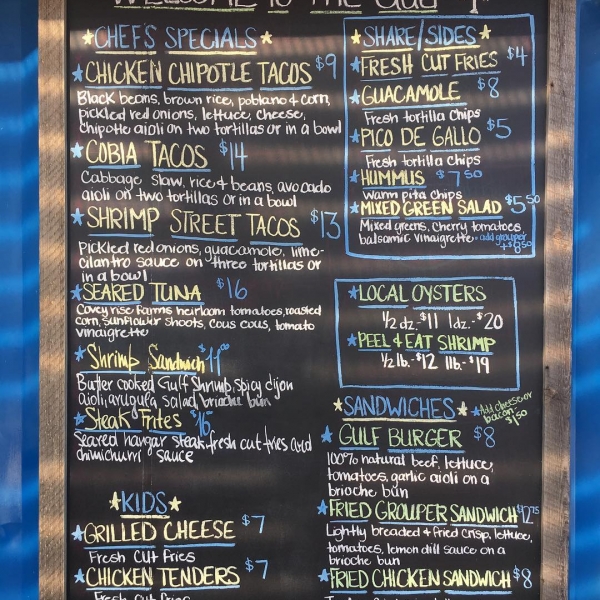 WELCOME TO THE
★CHEF'S SPECIALS★
★CHICKEN CHIPOTLE TACOS $9
Black beans, brown rice, poblano & corn,
pickled red onions, lettuce, cheese,
chipotle aioli on two tortillas or in a bowl
★COBIA TACOS $14
Cabbage slaw, rice & beans, avocado
aioli on two tortillas or in a bowl
★SHRIMP STREET TACOS $13
Pickled red onions, guacamole, lime-
cilantro sauce on three tortillas or
in a bowl
★SEARED TUNA $16
Covey rise Farms heirloom tomatoes, roasted
corn, sunflower shoots, cous cous, tomato
vinaigrette
★Shrimp Sandwich $11.00
Butter cooked Gulf Shrimp, spicy dijon
aioli, arugula, salad, brioche bun
★Steak Frites $16
Seared hangar steak, fresh cut fries and
chimichurri sauce
★KIDS★
★GRILLED CHEESE $7
Fresh Cut Fries
★CHICKEN TENDERS $7
Fresh Cut Fries
★SHARE/SIDES★
★FRESH CUT FRIES $4
★GUACAMOLE $8
Fresh tortilla Chips
★PICO DE GALLO $5
Fresh tortilla Chips
★HUMMUS $7.50
Warm pita Chips
★MIXED GREEN SALAD $5.50
Mixed greens, Cherry tomatoes,
balsamic Vinaigrette · add grouper
+$8.50
★LOCAL OYSTERS
1/2 dz.-$11 1dz.-$20
★PEEL & EAT SHRIMP
1/2 lb.-$12 lb.-$19
★SANDWICHES★
★Add Cheese or
bacon
$1.50
★GULF BURGER $8
100% natural beef, lettuce,
tomatoes, garlic aioli on a
brioche bun
★FRIED GROUPER SANDWICH $12.75
Lightly breaded & fried crisp, lettuce,
tomatoes, lemon dill sauce on a
brioche bun
★FRIED CHICKEN SANDWICH $8